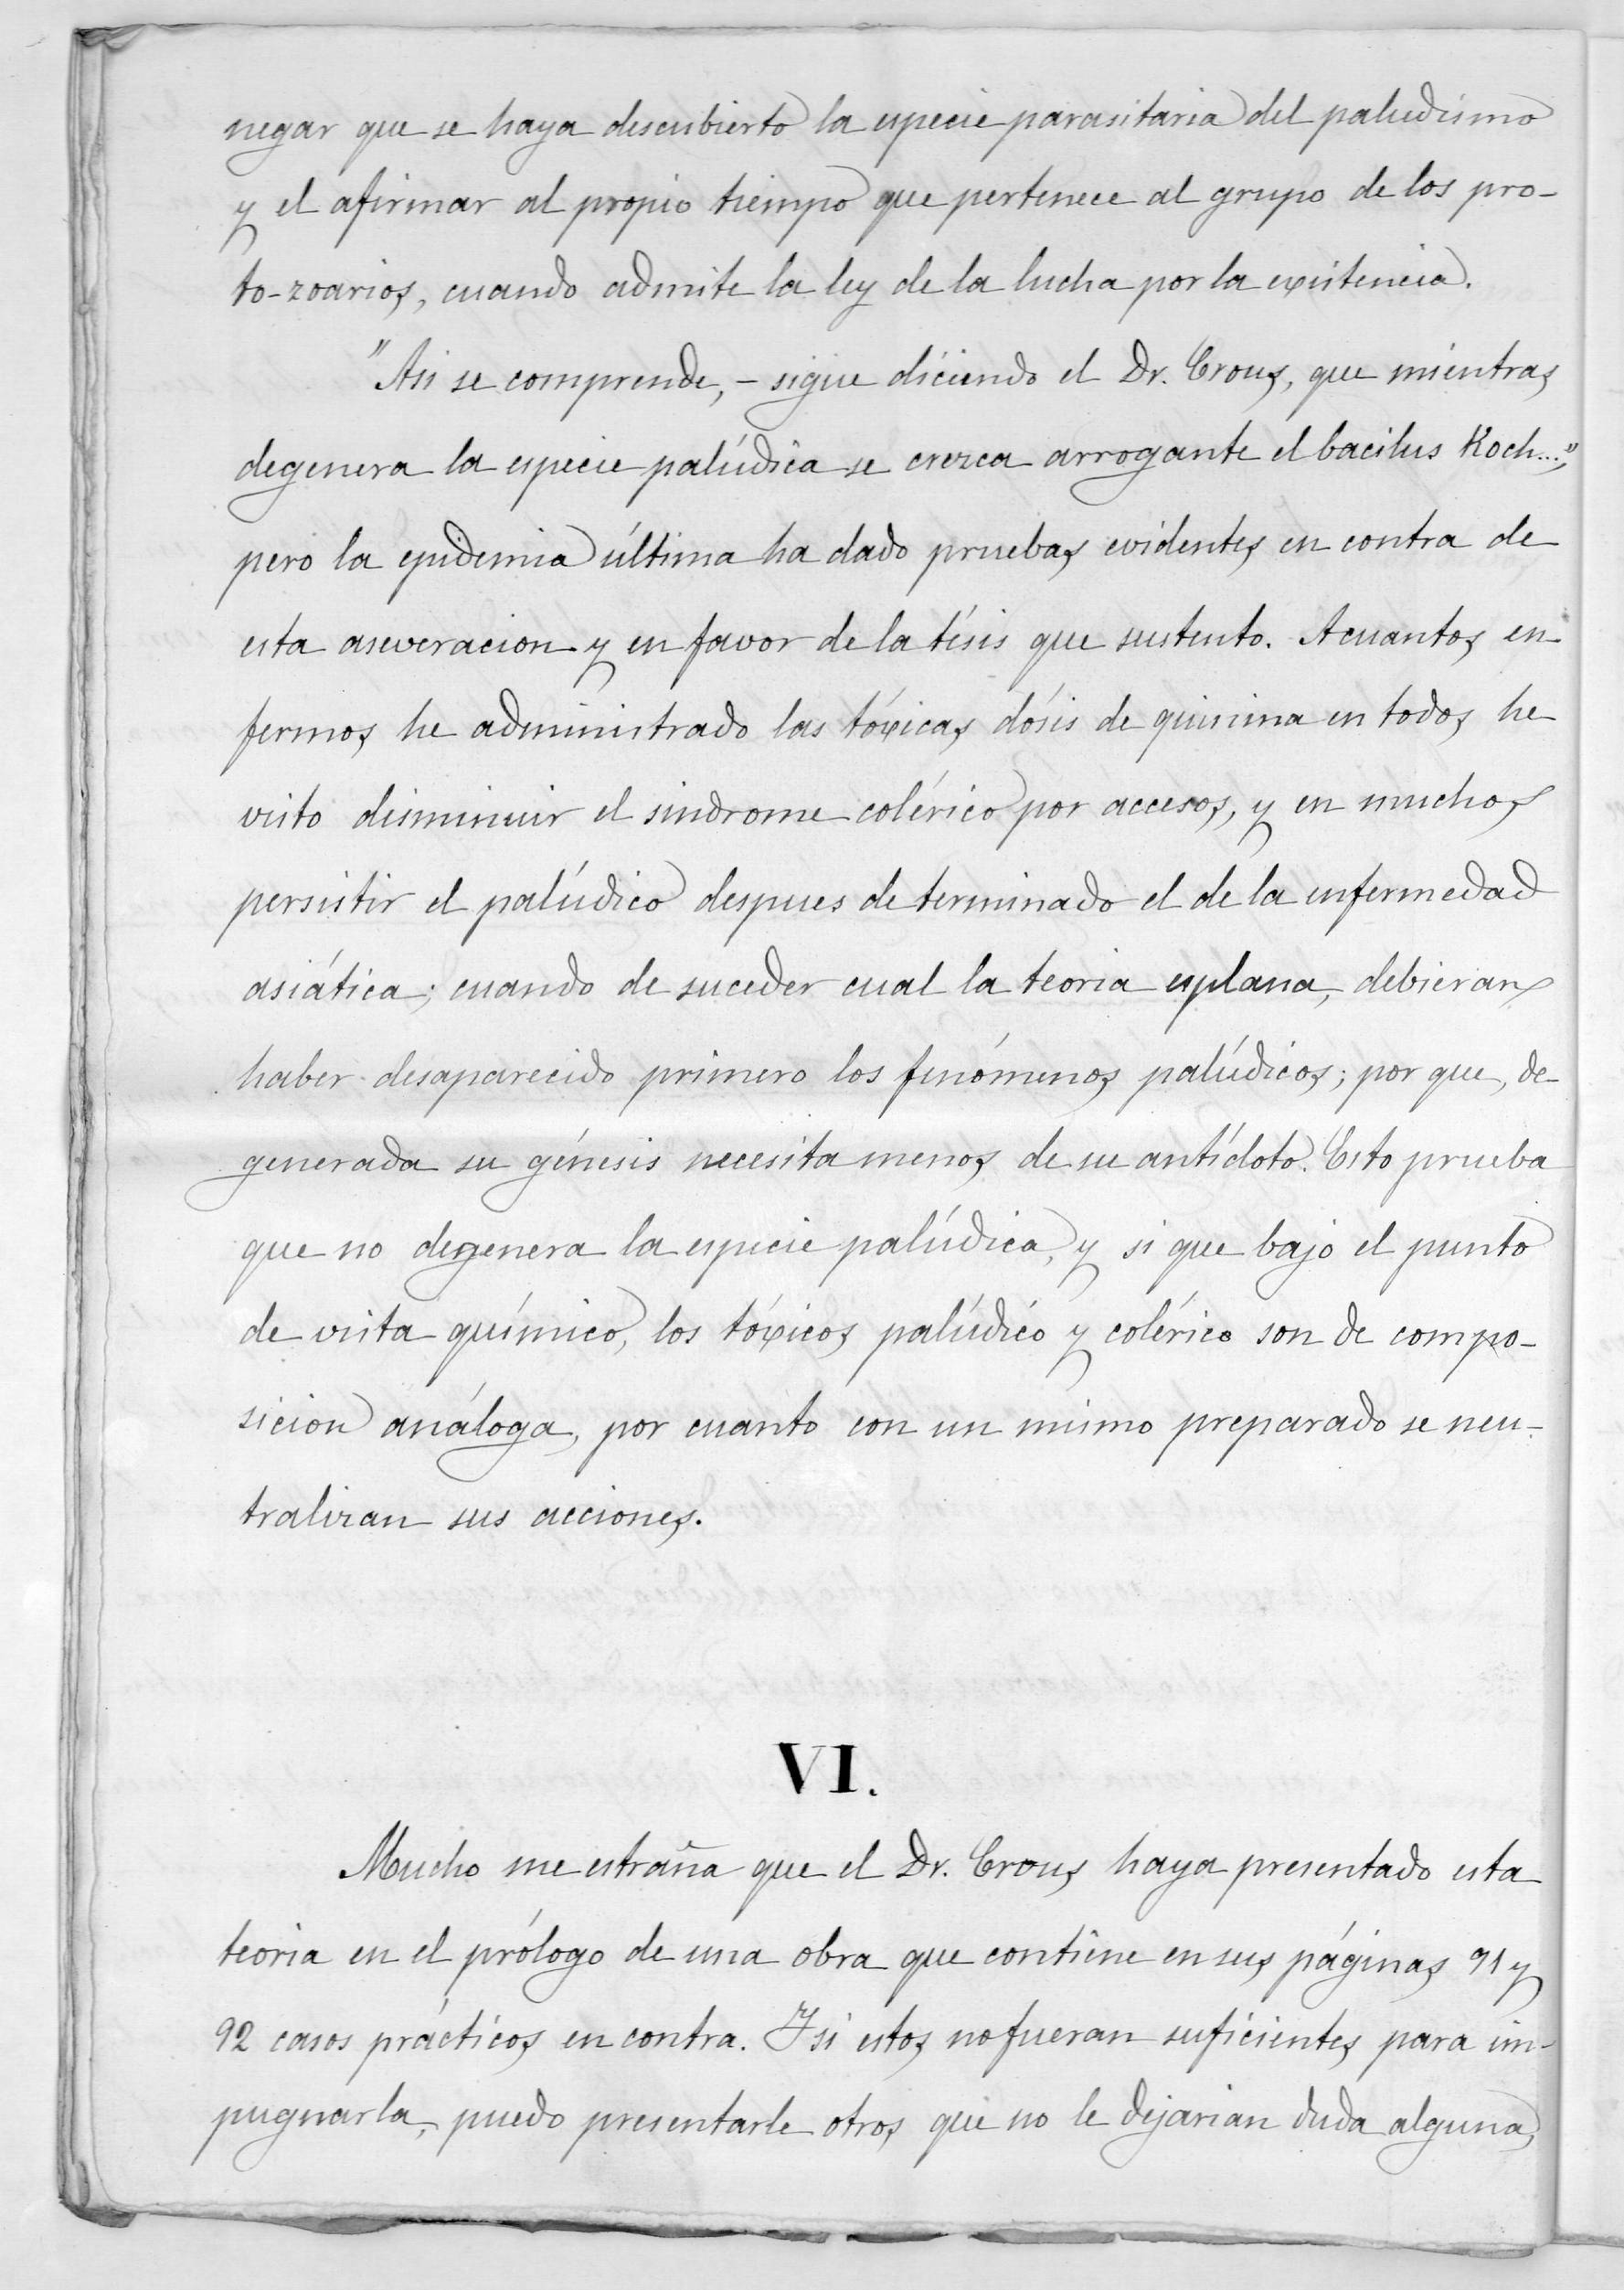 negar que se haya descubierto la especie parasitaria del paludismo
y el afirmar al propio tiempo que pertenece al grupo de los pro-
to-zoarios, cuando admite la ley de la lucha por la existencia.
"Asi se comprende, - sigue diciendo el Dr. Crous, que mientras
degenera la especie palúdica se crezca arrogante el bacilus Koch...",
pero la epidemia última ha dado pruebas evidentes en contra de
esta aseveracion y en favor de la tésis que sustento. A cuantos en
fermos he administrado las tóxicas dósis de quinina en todos he
visto disminuir el sindrome colérico por accesos, y en muchos
persistir el palúdico despues de terminado el de la enfermedad
asiática; cuando de suceder cual la teoria esplana, debieran
haber desaparecido primero los fenómenos palúdicos; por que, de-
generada su génesis necesita menos de su antídoto. Esto prueba
que no degenera la especie palúdica, y si que bajo el punto
de vista químico, los tóxicos palúdico y colérico son de compo-
sicion análoga, por cuanto con un mismo preparado se neu-
tralizan sus acciones.
VI.
Mucho me estraña que el Dr. Crous haya presentado esta
teoria en el prólogo de una obra que contiene en sus páginas 91 y
92 casos prácticos en contra. Y si estos no fueran suficientes para im-
pugnarla, puedo presentarle otros que no le dejarian duda alguna,